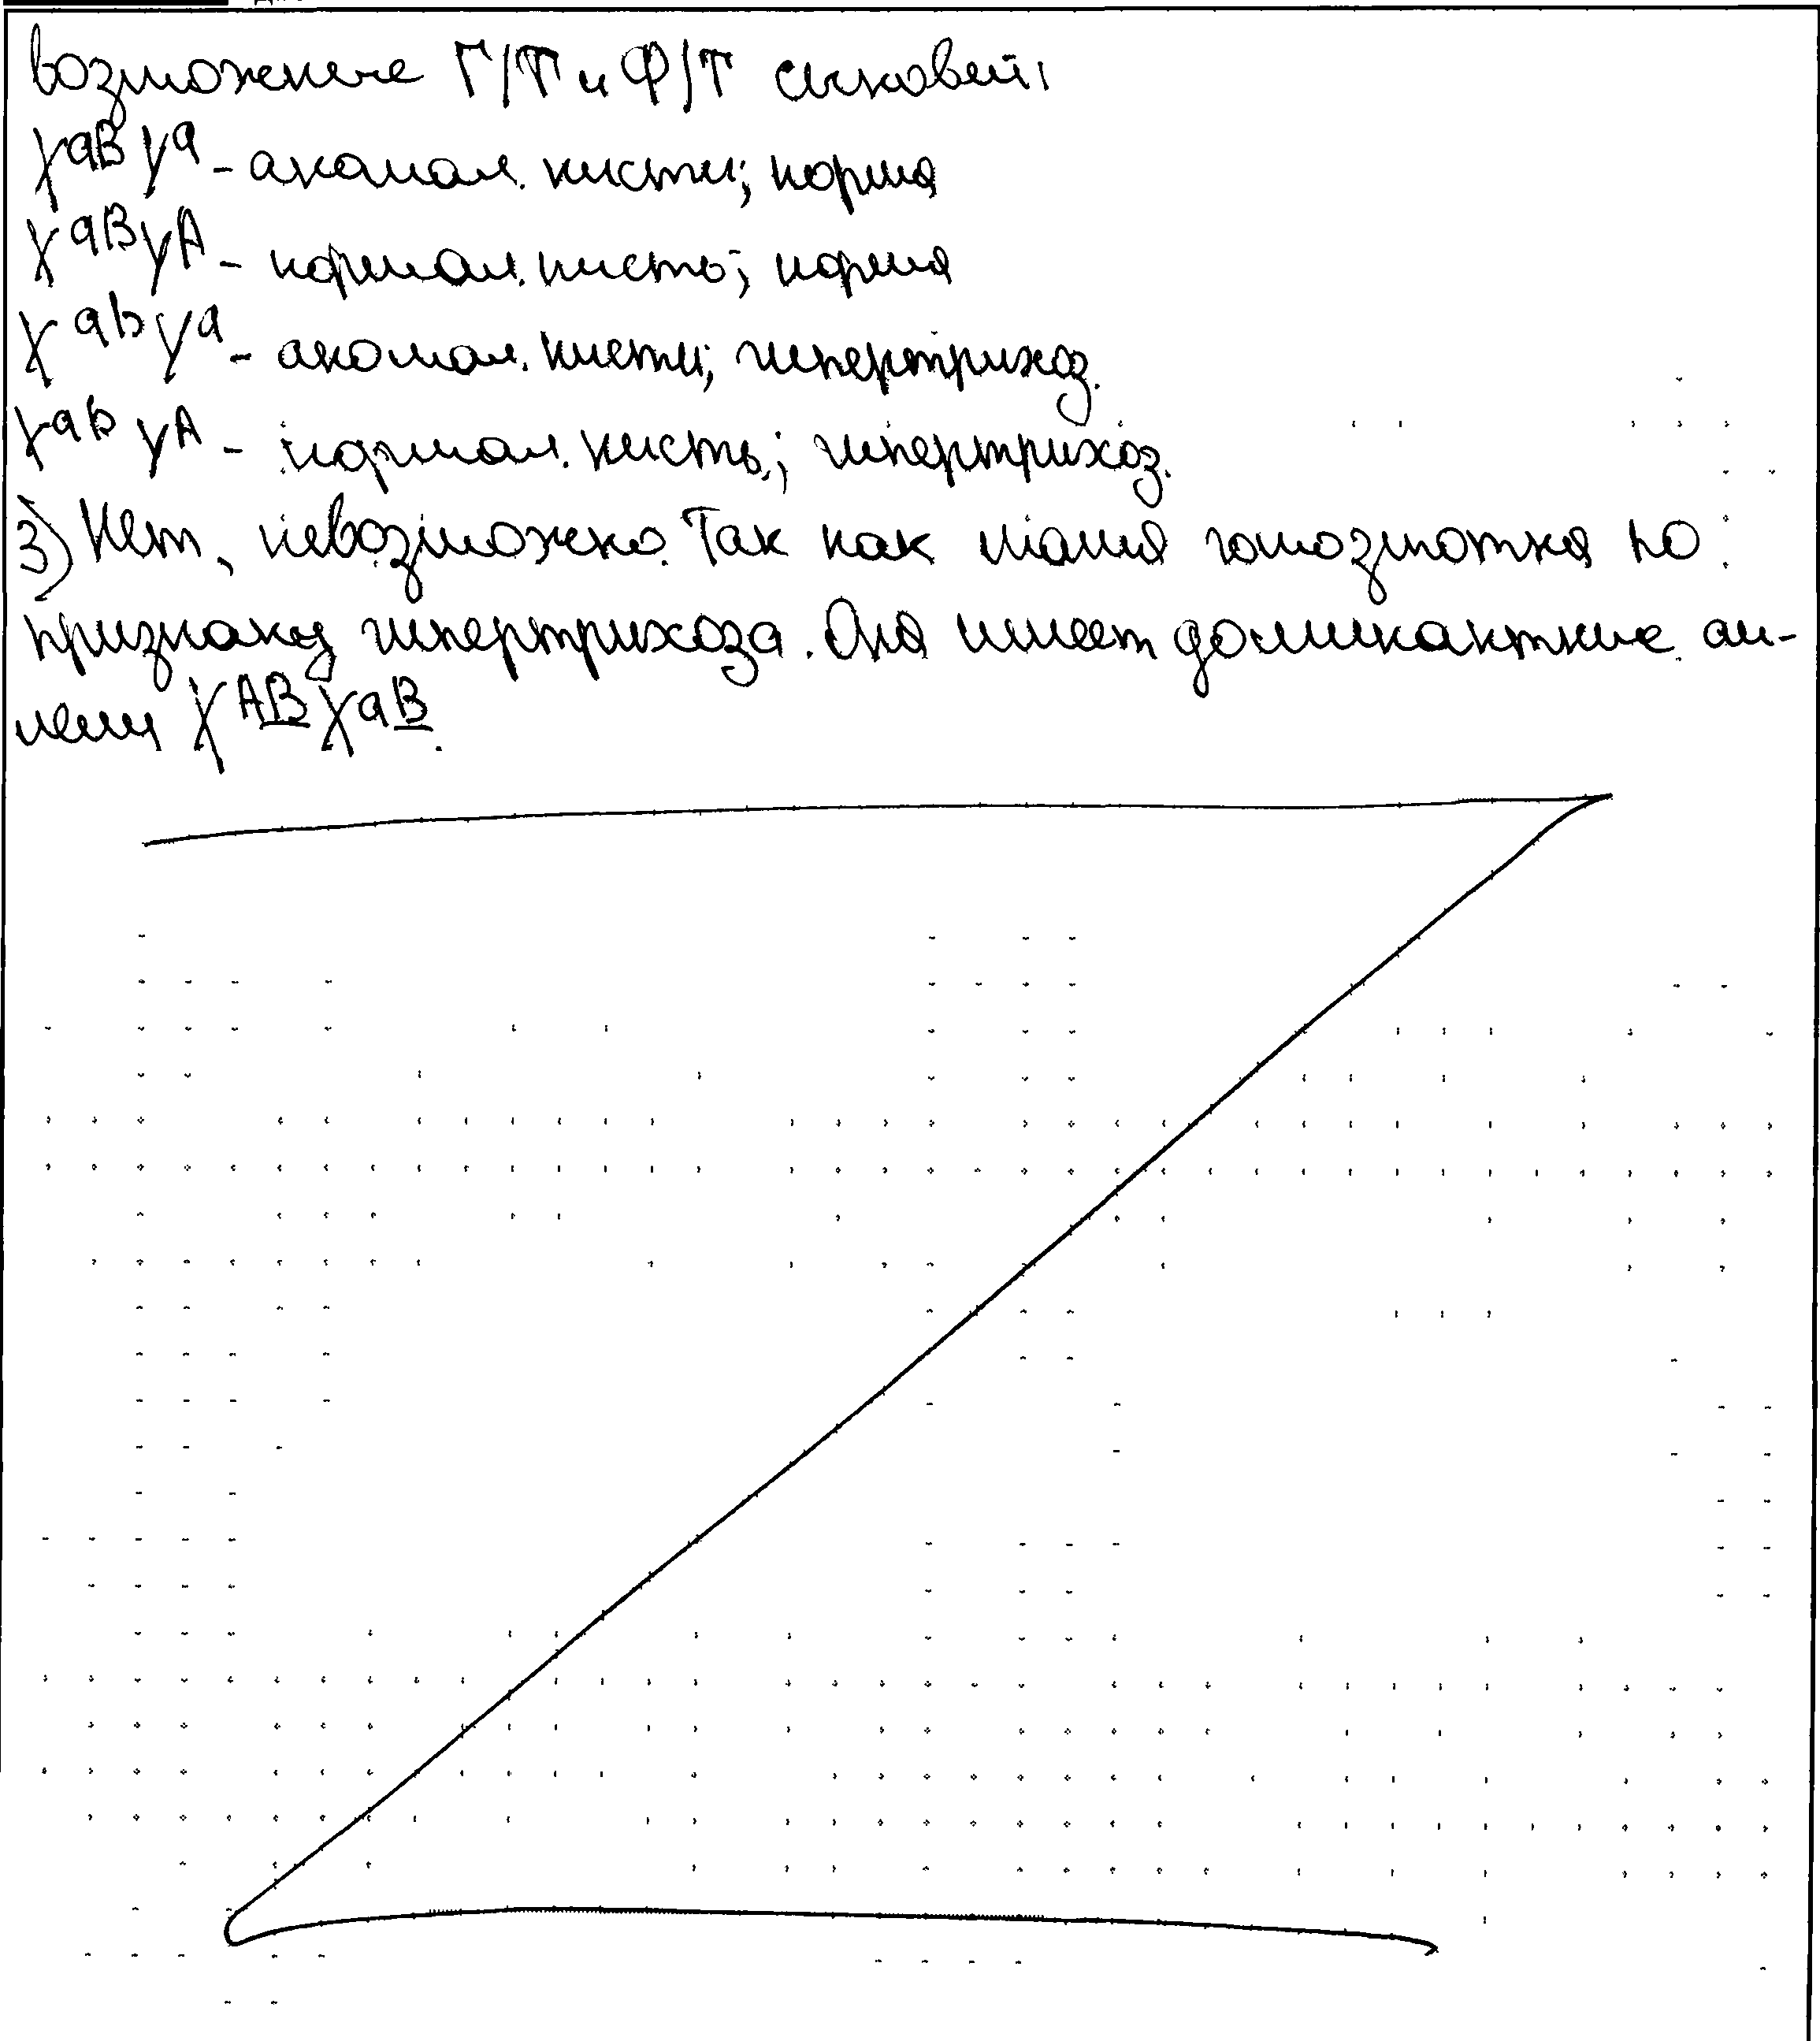 возможные Г/Т и Ф/Т сыновей:
X^aB Y^a - аномал. кисти; норма
X^aB Y^A - нормал. кисть; норма
X^ab Y^a - аномал. кисти; гипертрихоз.
X^ab Y^A - нормал. кисть; гипертрихоз.
3) Нет, невозможно. Так как мама гомозготна по
признаку гипертрихоза. Она имеет доминантные ал-
лели X^AB X^aB.